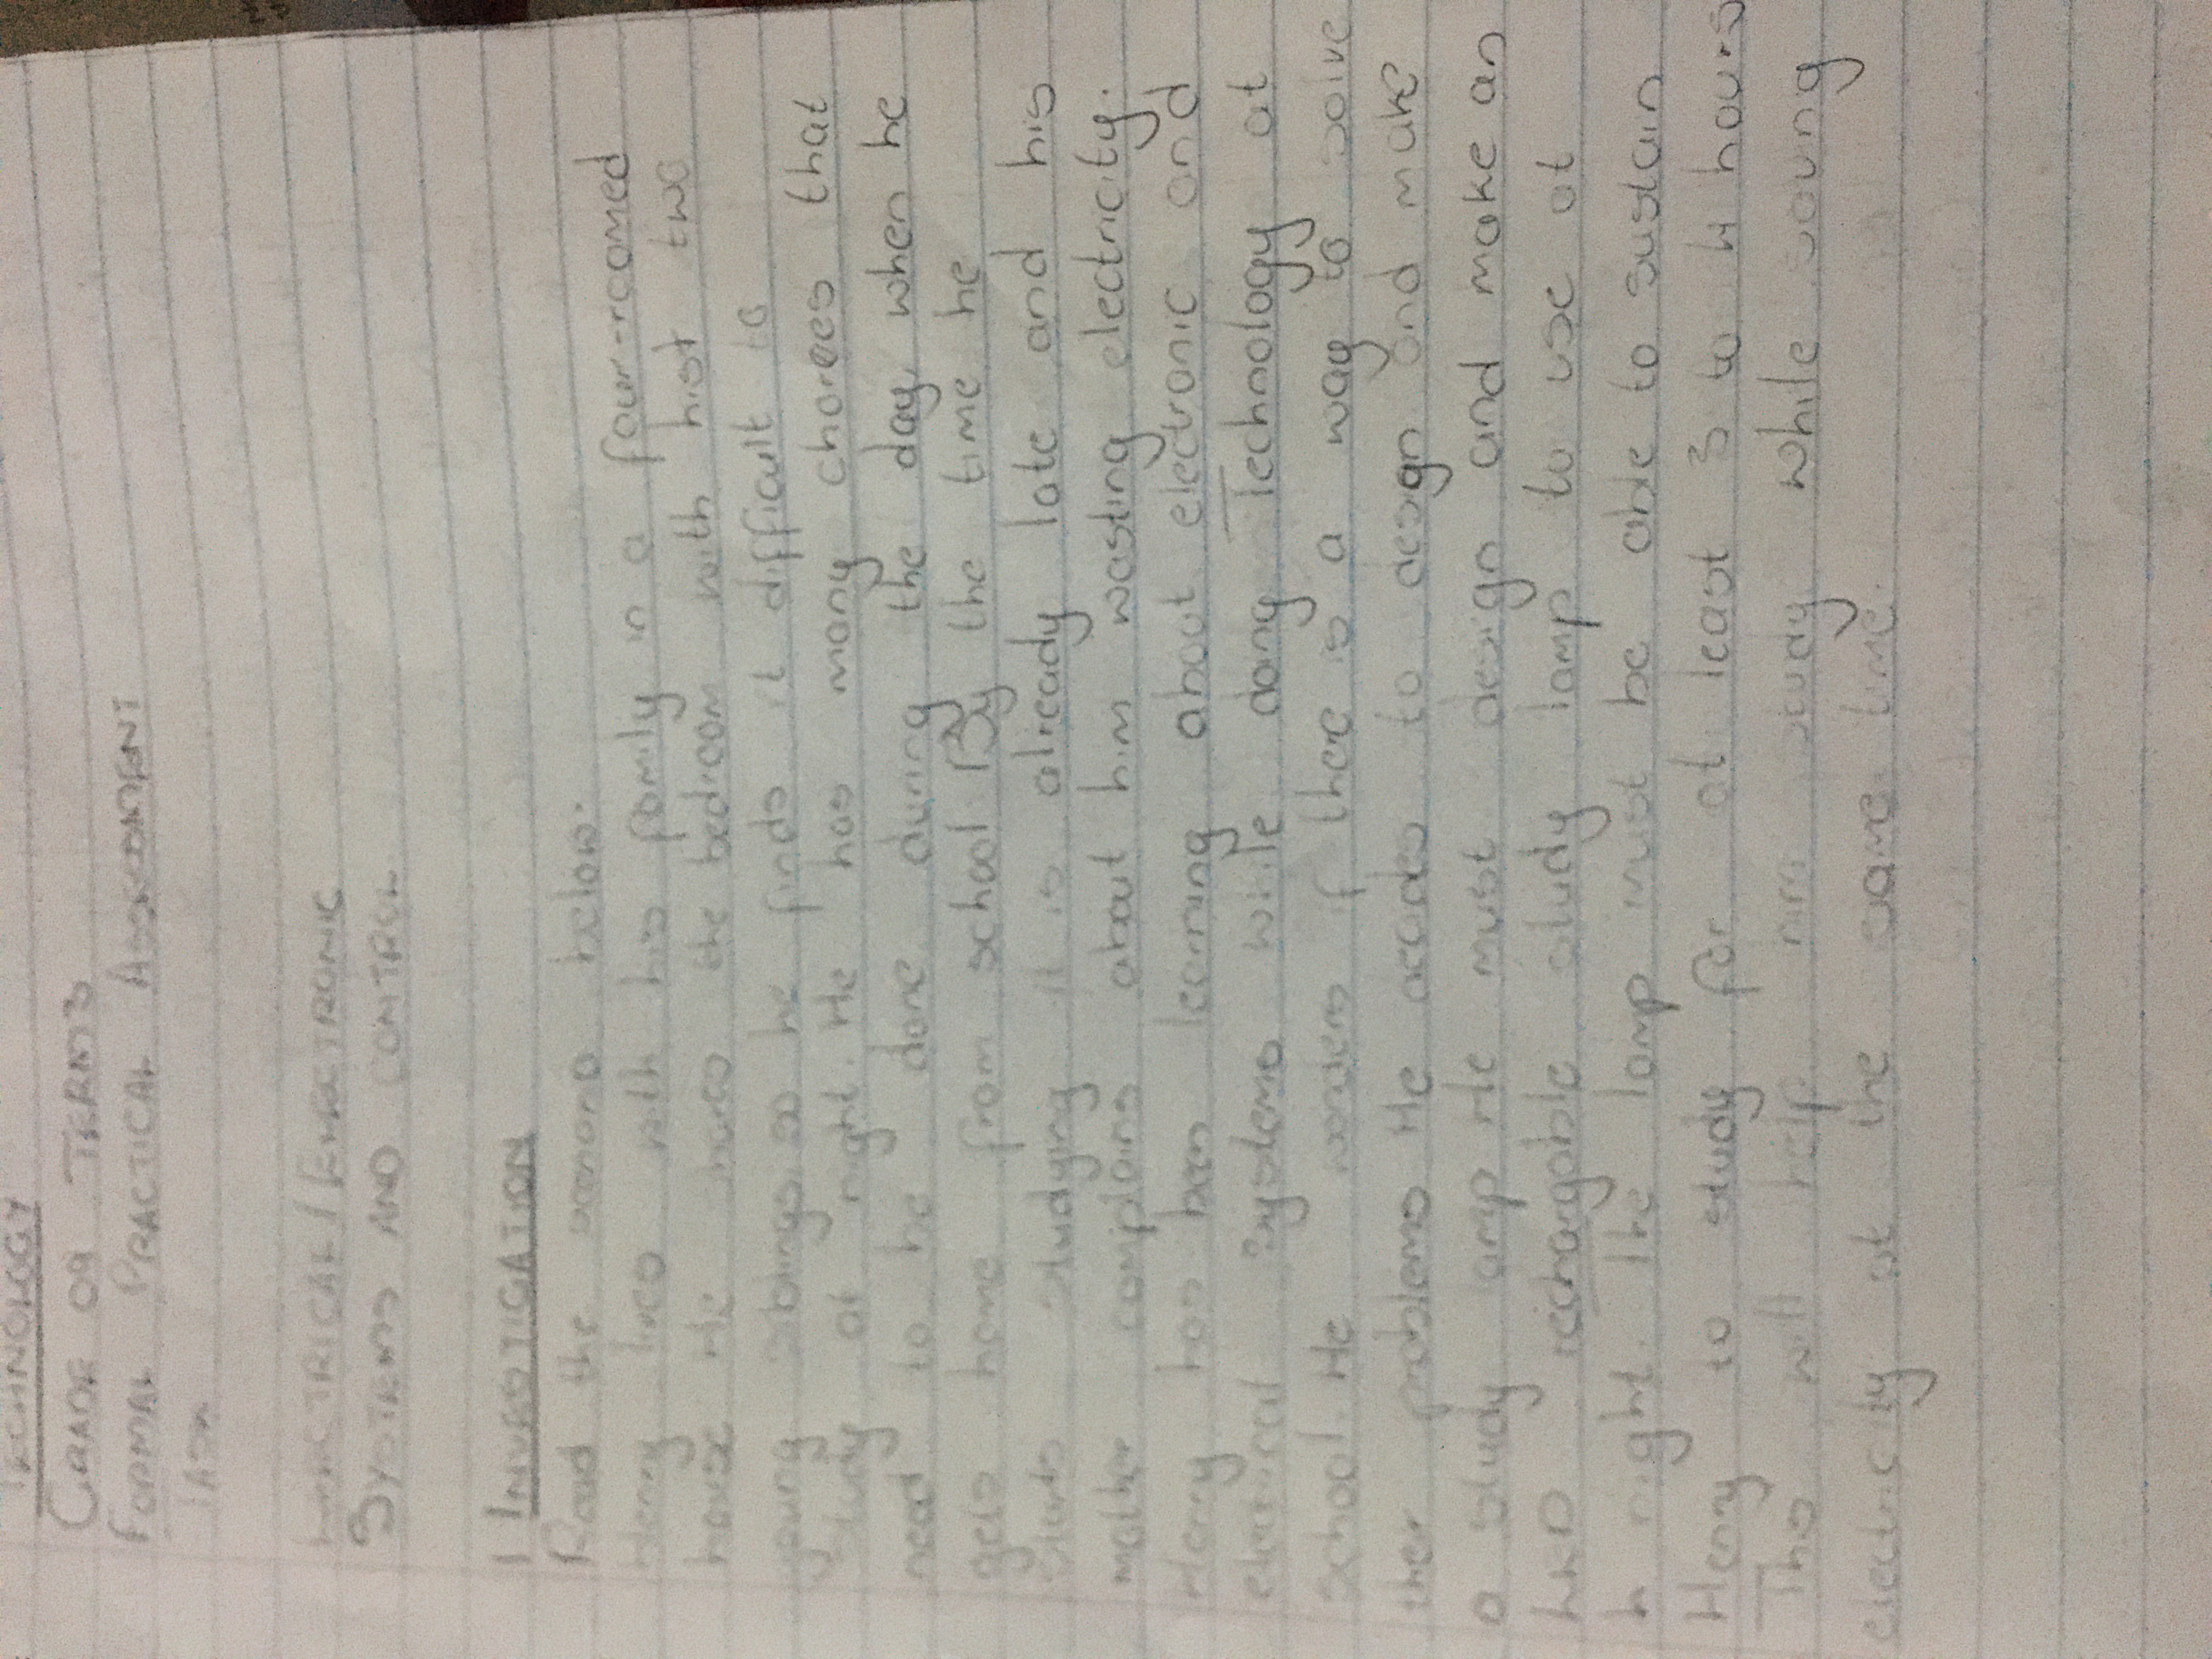 TECHNOLOGY
GRADE 09 TERM 3
FORMAL PRACTICAL ASSESSMENT
TASK
ELECTRICAL / ELECTRONIC
SYSTEMS AND CONTROL
1 INVESTIGATION
Read the scenario below.
Henry lives with his family in a four-roomed
house He shares the bedroom with hist two
young siblings, so he finds it difficult to
study at night. He has many chorees that
need to be done during the day, when he
gets home from school. By the time he
starts studying it is already late and his
mother complains about him wasting electricity.
Henry has been learning about electronic and
electrical systems while doing Technology at
school. He wonders if there is a way to solve
their problems He decides to design and make
a study lamp He must design and make an
LED rechargable study lamp to use at
h night. The lamp must be able to sustain
Henry to study for at least 3 to 4 hours
This will help him study while saving
electricity at the same time.